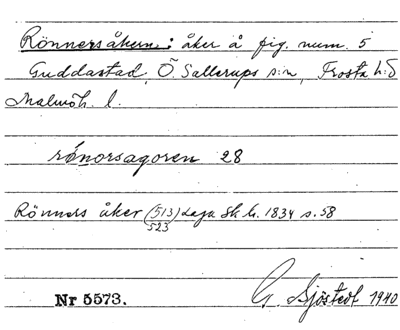 Rönnersåkern: åker å fig. num. 5
Guddastad, Ö Sallerups s:n, Frosta h:d
Malmöh. l.
rönorsagoren 28
Rönners åker (513) Laga Sk h. 1834 s. 58
523
Nr 5573.
G. Sjöstedt 1940